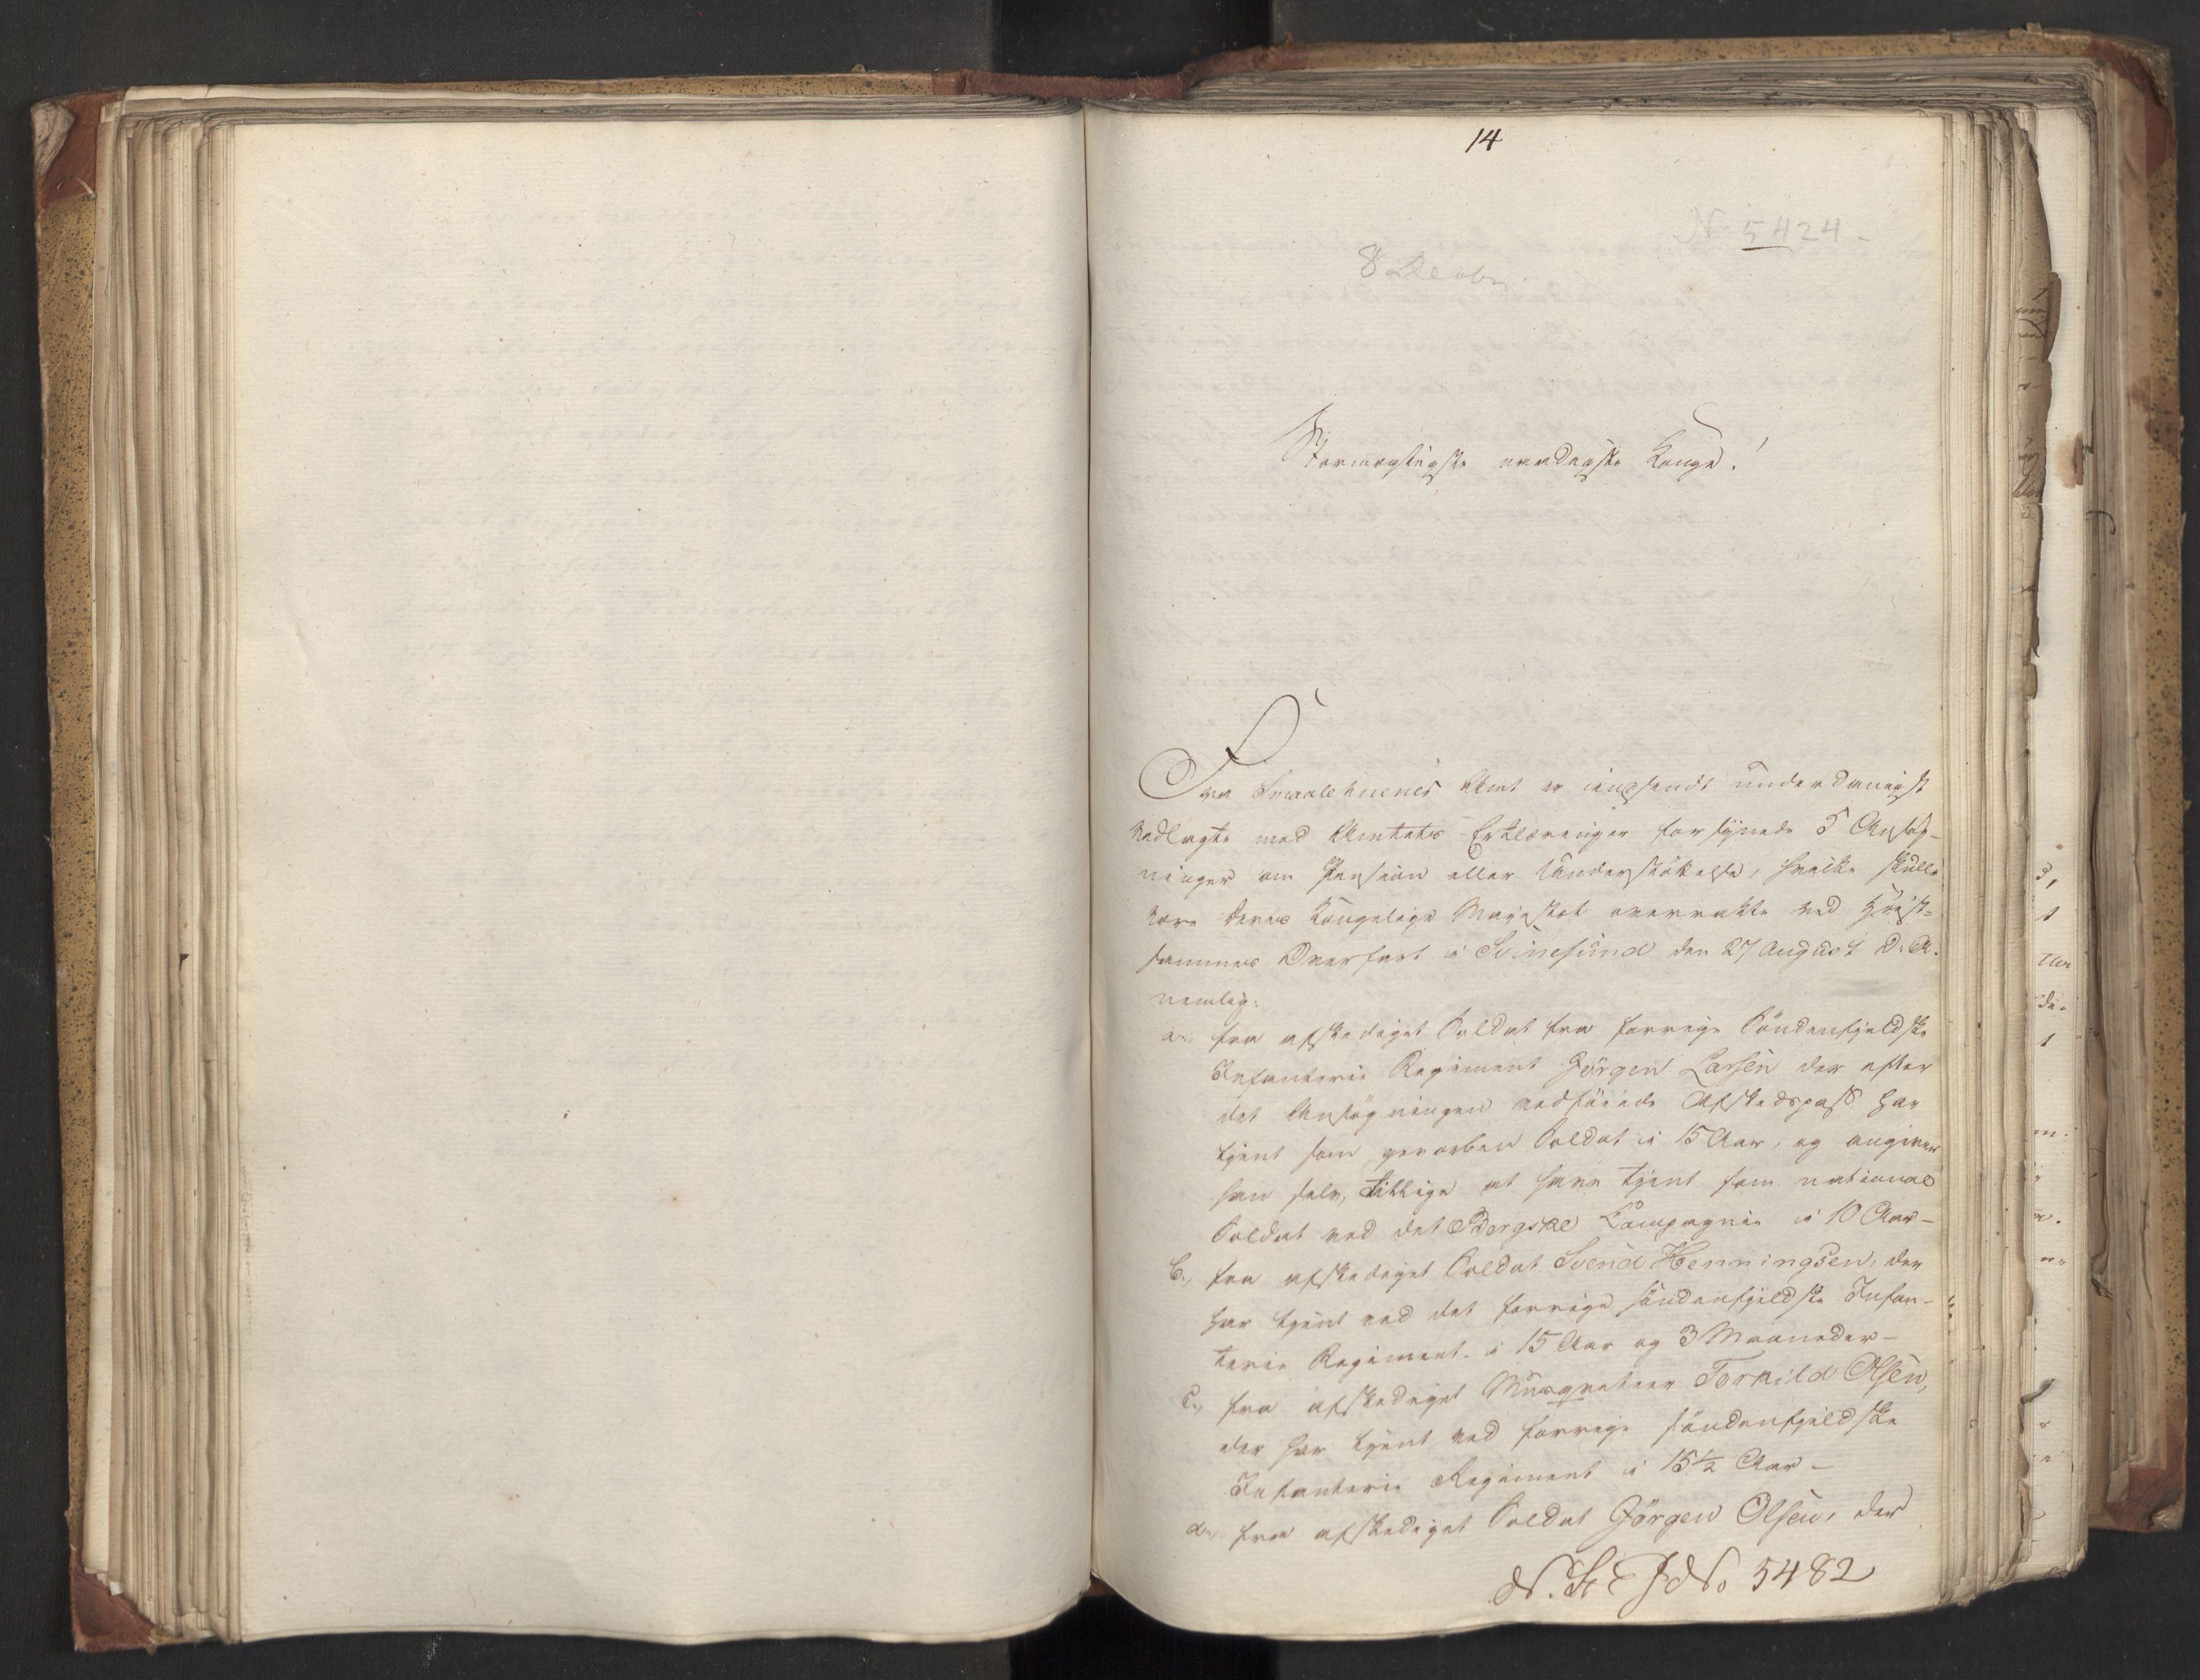 14
N 5424 -
8 Decbr
Stormægtigste naadigste Konge!
Fra Smaalehnenes Amt er indsendt underdanigst
vedlagte med Amtets Erklæringer forsynede 5 Ansøg-
ninger om Pension eller Understøttelse, hvilke skulle
være Deres Kongelige Majestæt overrakte ved Høist-
sammes Overfart i Svinesund den 27 August d. A.
nemlig:
a., fra afskediget Soldat fra forrige Søndenfjeldske
Infanterie Regiment Jørgen Larsen der efter
det Ansøgningen vedføiede Afskedspass har
tjent som geworben Soldat i 15 Aar, og angiver
han selv, tillige at have tjent som national
Soldat ved det Bergske Compagnie i 10 Aar -
b., fra afskediget Soldat Svend Henningsen, der
har tjent ved det forrige søndenfjeldske Infan-
terie Regiment i 15 Aar og 3 Maaneder -
c., fra afskediget Musqueteer Torkild Olsen,
der har tjent ved forrige søndenfjeldske
Infanterie Regiment i 15½ Aar -
d., fra afskediget Soldat Jørgen Olsen, der
No 5482